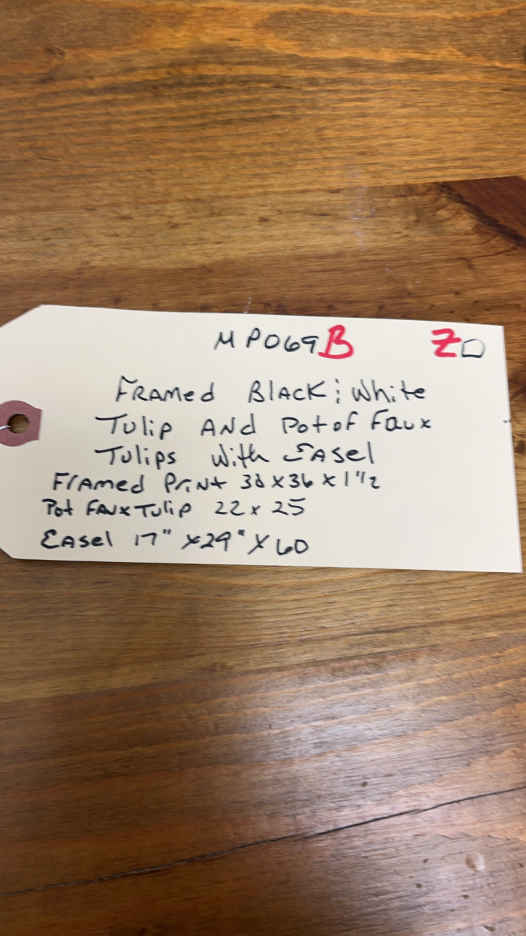 MP069B Z
FRAMED BLACK & White
Tulip AND Pot of Faux
Tulips With Easel
FRAMED PRINT x 36 x 1 1/2
Pot FAUX Tulip 22 x 25
EASEL 17" x 29" x 60